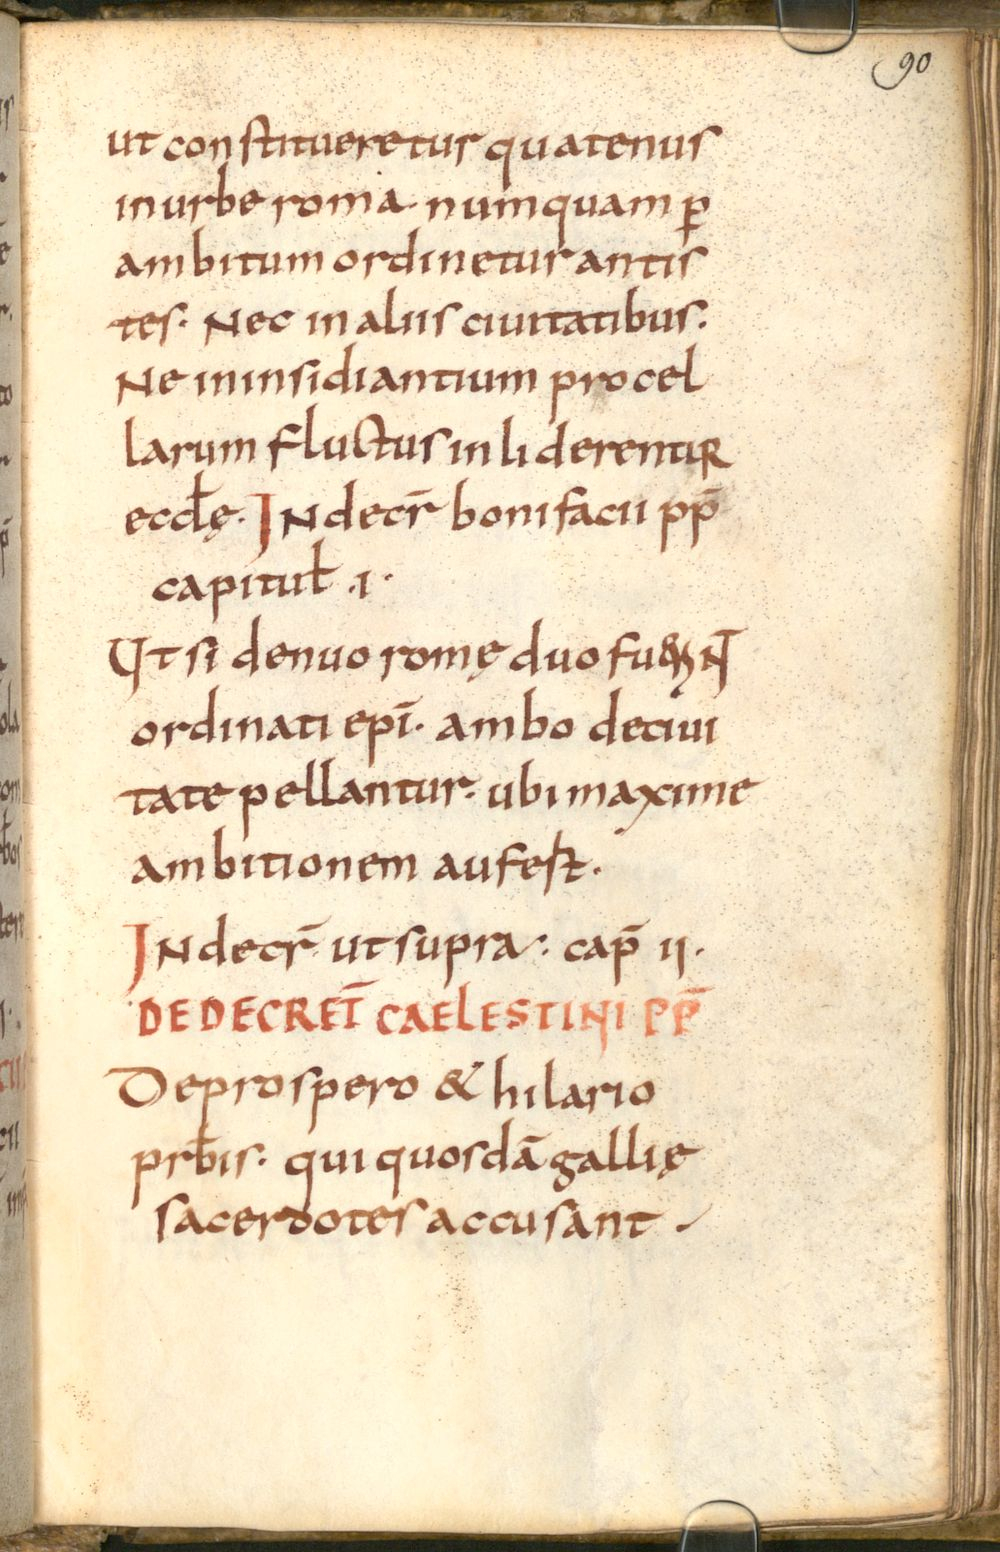 90
ut constitueretur quatenus
in urbe roma. numquam p̲
ambitum ordinetur antis
tes. Nec in aliis ciuitatibus.
Ne in insidiantium procel
larum fluctus inliderentur
eccłę. IN decr̄ bonifacii pp̄
capituł .i.
Ut si denuo romę duo fuer̄
ordinati epī. ambo deciui
tate pellantur. ubi maxime
ambitionem aufest.
IN decr̄ ut supra. cap̄ ii.
DE DECRET̄ CAELESTINI PP̄
De prospero & hilario
prb̄is. qui quosdā gallię
sacerdotes accusant.